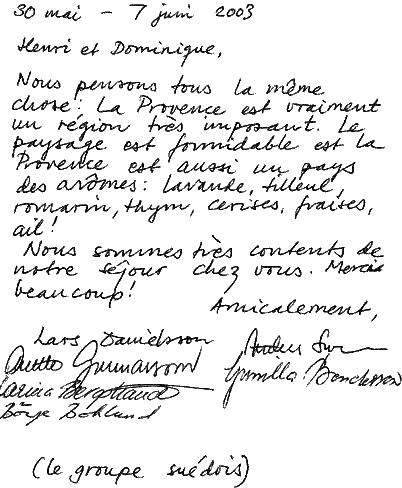 30 mai – 7 juin 2003
Henri et Dominique,
Nous pensons tous la même
chose: La Provence est vraiment
un région très imposant. Le
paysage est formidable est la
Provence est aussi un pays
des arômes: lavande, tilleul,
romarin, thym, cerises, fraises,
ail!
Nous sommes très contents de
notre séjour chez vous. Mercis
beaucoup!
Amicalement,
Lars Danielsson
Gunnarsson
Gunilla
Börje
(le groupe suédois)